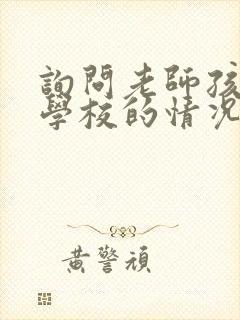 詢問老師孩
學校的情況
黃警頑